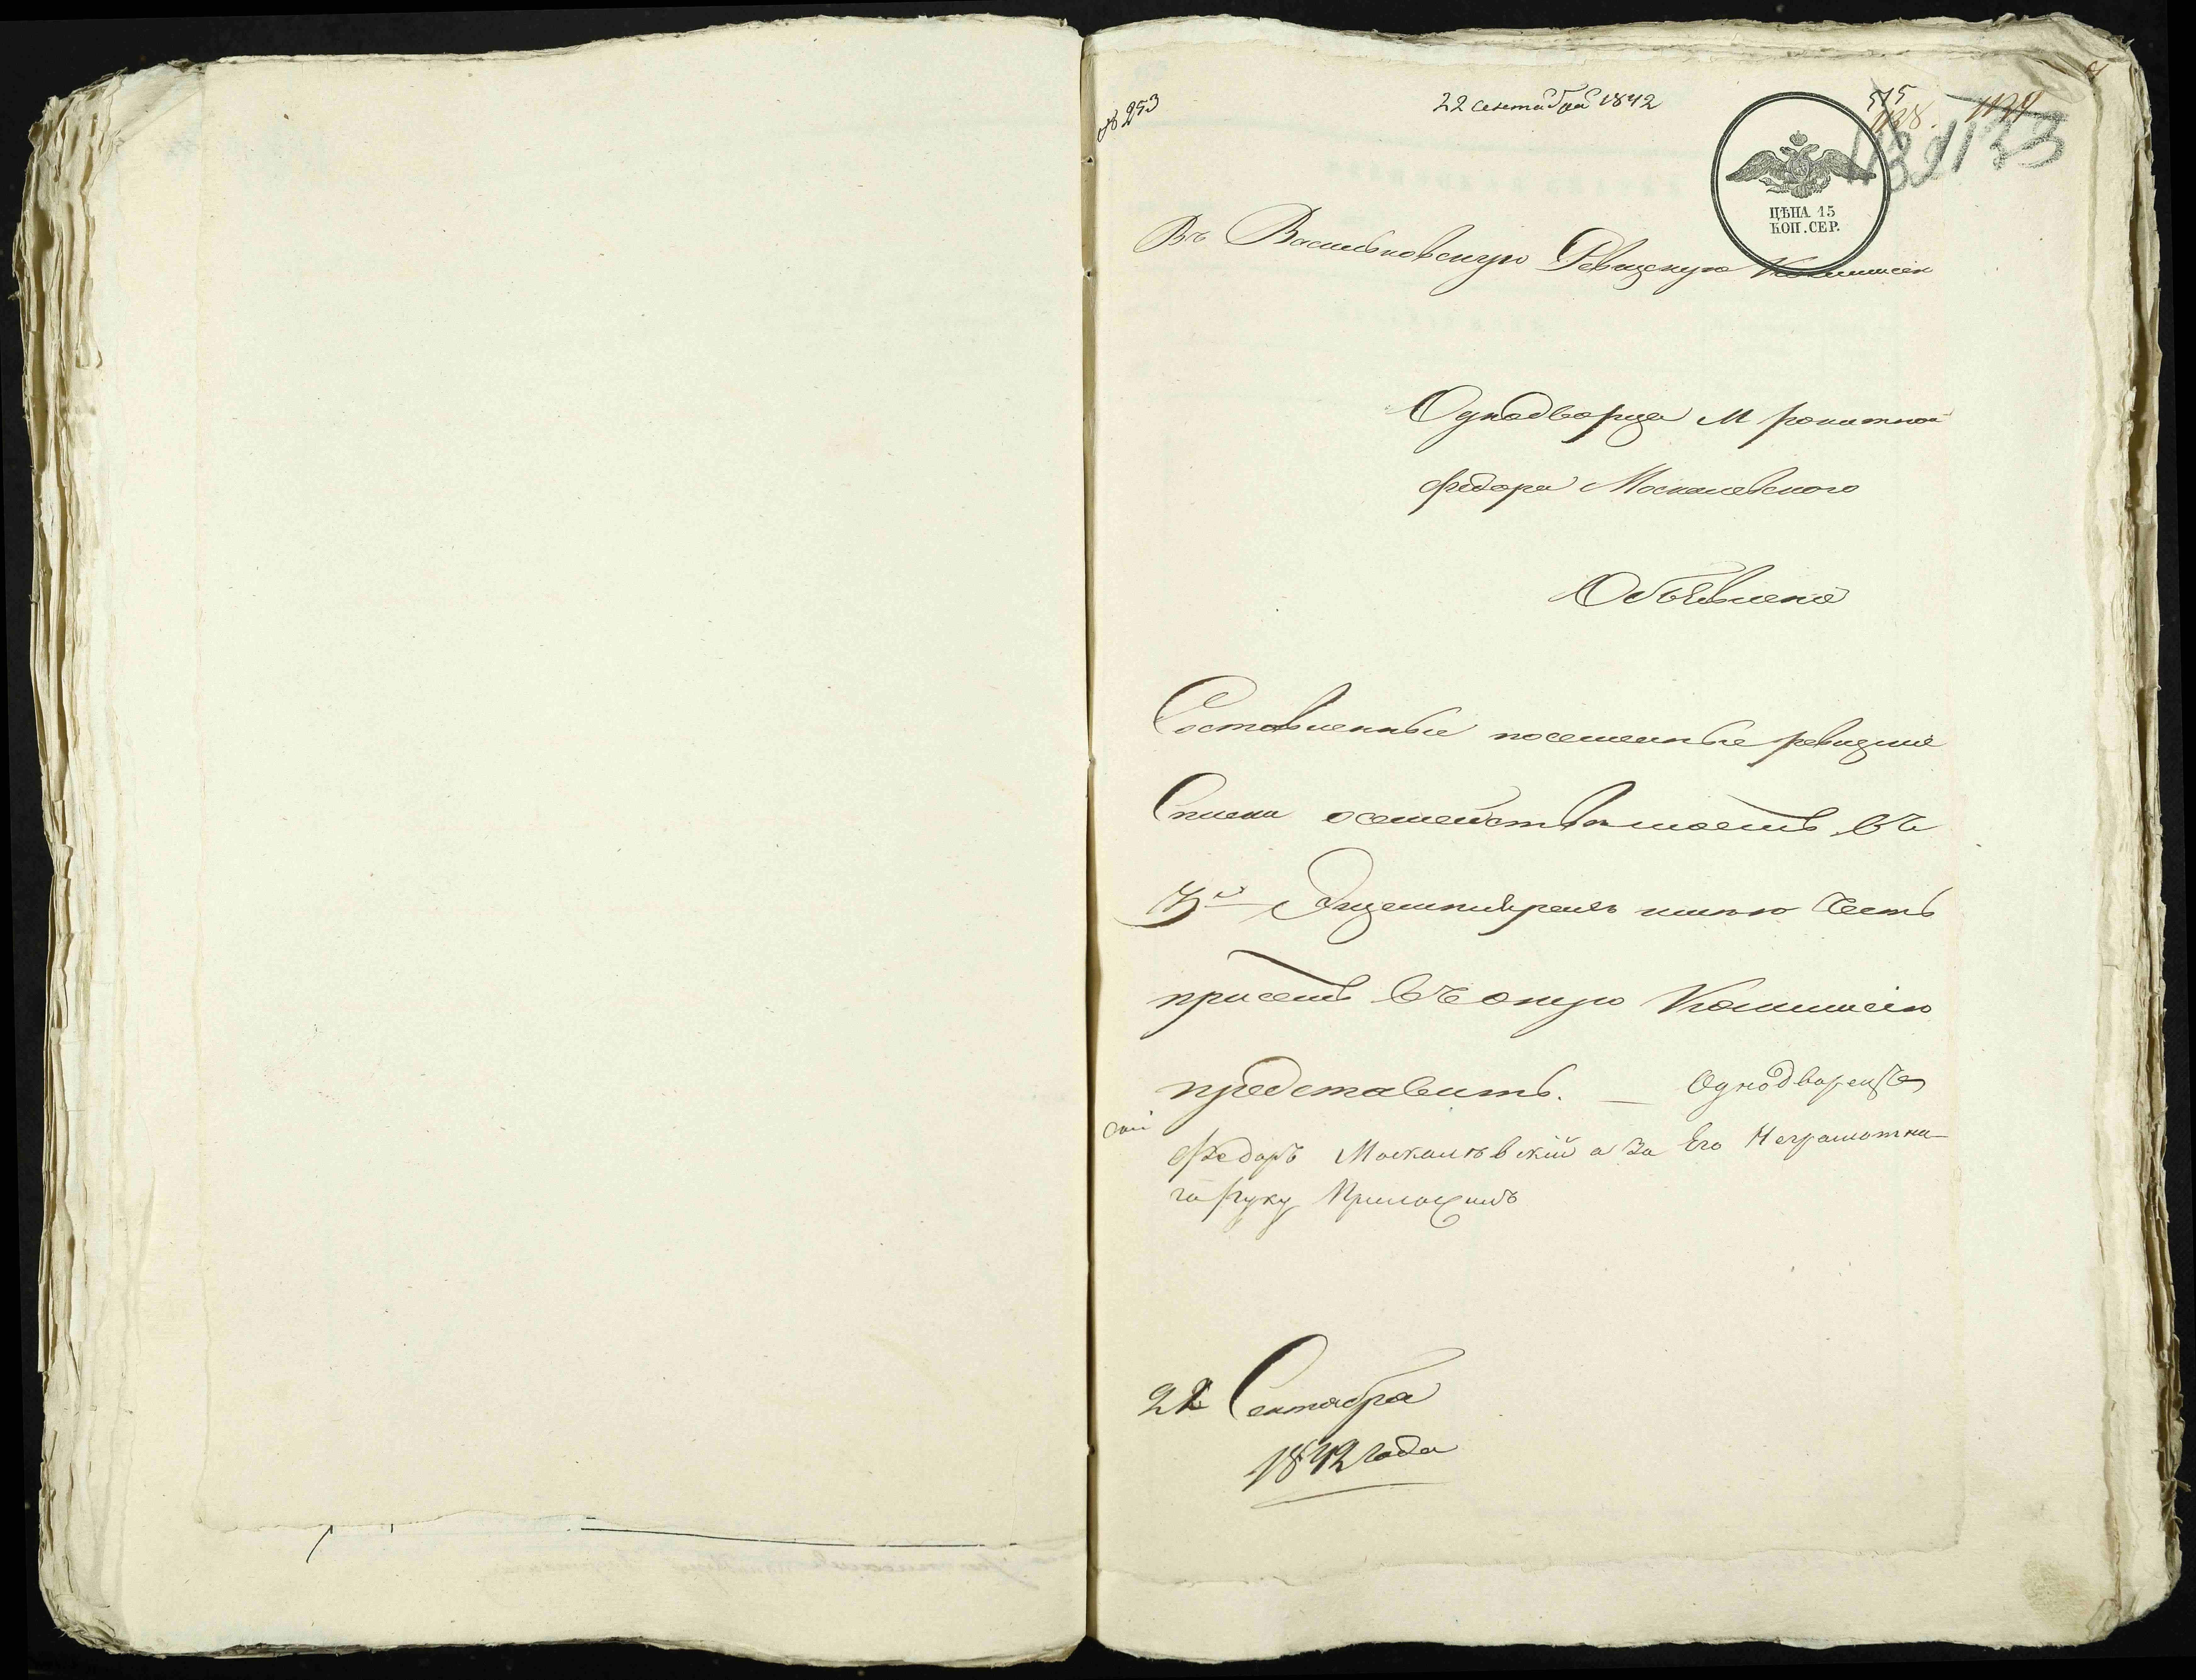 № 253
22 сентабра 1842
575
1138.
1133
ЦѢНА 15
КОП. СЕР.
Въ Васильковскую Ревизскую Коммисію
Однодворца М Рокитной
Федора Москалевского
Объявленіе
Составленные посемейные ревизкіе
Списки осемействѣ моемъ въ
3х Экземплярахъ имѣю Честь
присемъ въ оную Коммисію
представить. — Однодворецъ
Федоръ Москалѣвскій а За Его Неграмотна-
го Руку Приложилъ
22 Сентабра
1842 года